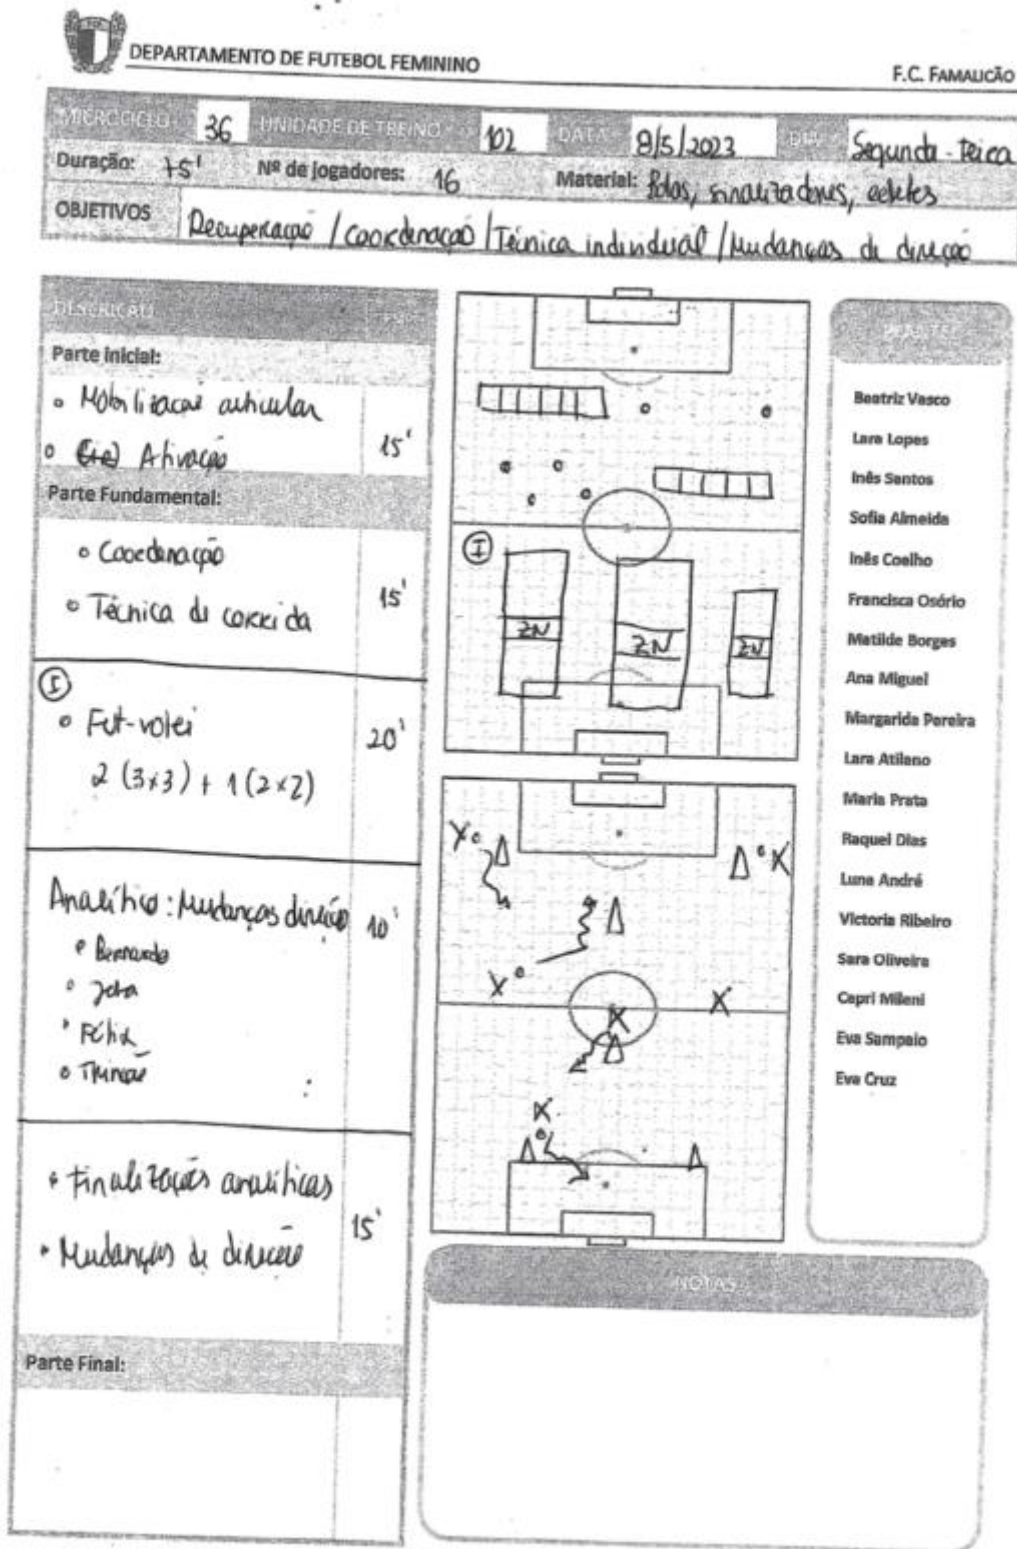 DEPARTAMENTO DE FUTEBOL FEMININO
F.C. FAMALICÃO
MICROCICLO 36 UNIDADE DE TREINO 102 DATA 8/5/2023 DIA Segunda-feira
Duração: 75' Nº de jogadores: 16 Material: Bolas, sinalizadores, coletes
OBJETIVOS Recuperação / Coordenação / Técnica individual / Mudanças de direção
DESCRIÇÃO
Parte inicial:
Mobilização articular
Ativação
15'
Parte Fundamental:
Coordenação
Técnica de corrida
15'
I
Fut-volei
2 (3x3) + 1 (2x2)
20'
Analítico: Mudanças direção 10'
Bernardo
Jota
Félix
Trincão
Finalizações analíticas
Mudanças de direção
15'
Parte Final:
I
ZN
ZN
ZN
Beatriz Vasco
Lara Lopes
Inês Santos
Sofia Almeida
Inês Coelho
Francisca Osório
Matilde Borges
Ana Miguel
Margarida Pereira
Lara Atilano
Maria Prata
Raquel Dias
Luna André
Victoria Ribeiro
Sara Oliveira
Capri Mileni
Eva Sampaio
Eva Cruz
NOTAS